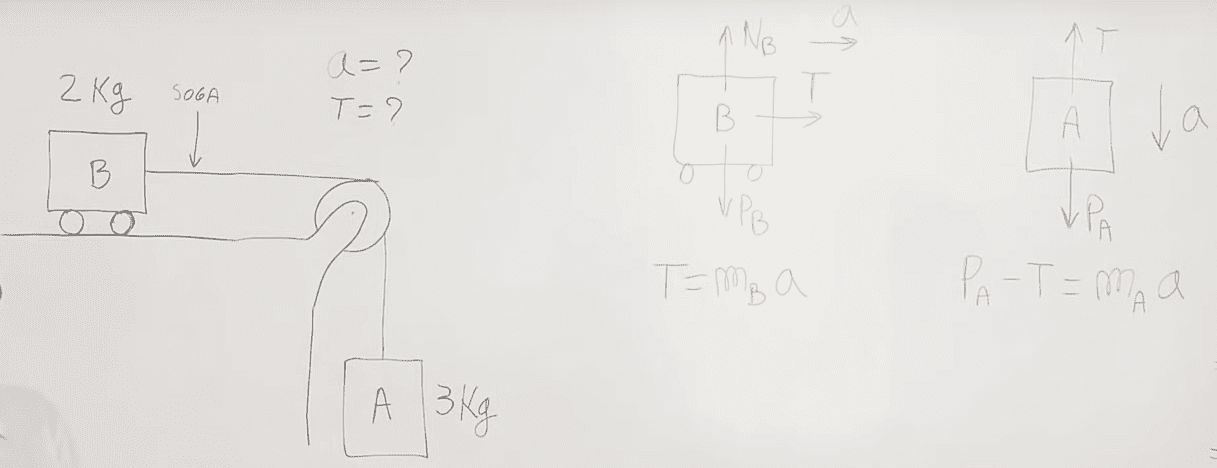 a = ?
T = ?
2 Kg
SOGA
B
A
3 Kg
N_B
a
T
B
P_B
T = m_B a
T
A
a
P_A
P_A - T = m_A a